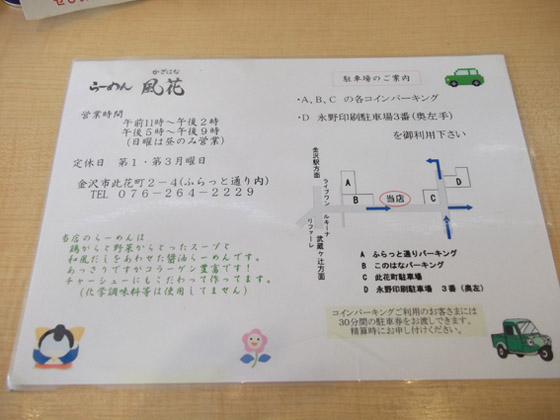 かざはな
らーめん 風花
営業時間
午前11時～午後2時
午後5時～午後9時
(日曜は昼のみ営業)
定休日 第1・第3月曜日
金沢市此花町2-4(ふらっと通り内)
TEL 076-264-2229
当店のらーめんは
鶏がらと野菜からとったスープと
和風だしをあわせた醤油らーめんです。
あっさりですがコラーゲン豊富です!
チャーシューにもこだわって作ってます。
(化学調味料等は使用してません)
駐車場のご案内
・A、B、C の各コインパーキング
・D 永野印刷駐車場3番(奥左手)
を御利用下さい
金沢駅方面
ライブワン
リファーレ
ルキーナ
武蔵ヶ辻方面
A
B
当店
C
D
A ふらっと通りパーキング
B このはなパーキング
C 此花町駐車場
D 永野印刷駐車場 3番(奥左)
コインパーキングご利用のお客さまには
30分間の駐車券をお渡しできます。
精算時にお申し付けください。